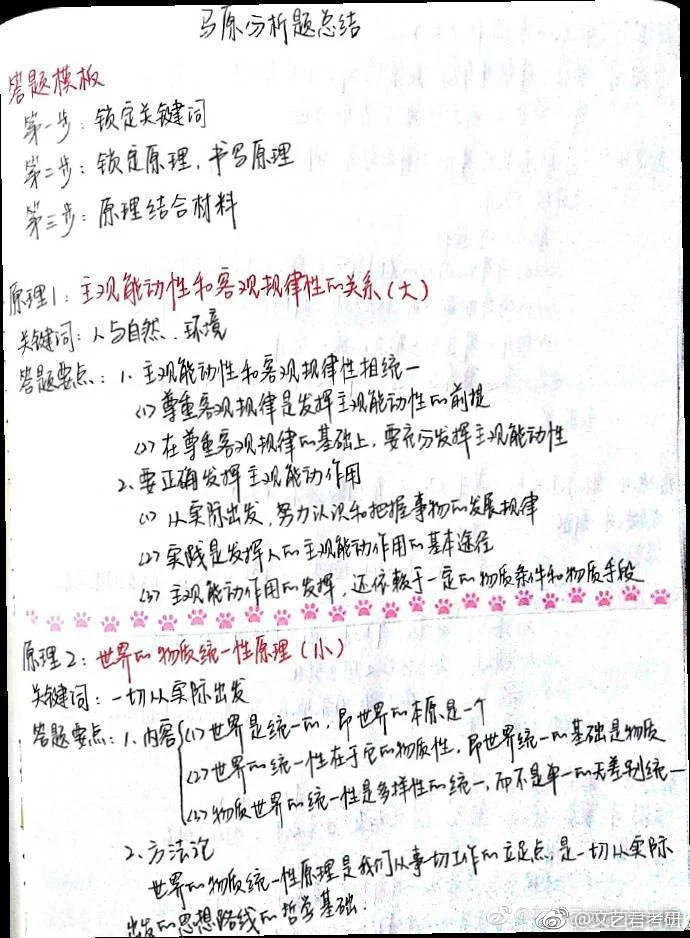 马原分析题总结
答题模板
第一步：锁定关键词
第二步：锁定原理，书写原理
第三步：原理结合材料
原理1：主观能动性和客观规律性的关系（大）
关键词：人与自然、环境
答题要点：1、主观能动性和客观规律性相统一
(1) 尊重客观规律是发挥主观能动性的前提
(2) 在尊重客观规律的基础上，要充分发挥主观能动性
2、要正确发挥主观能动作用
(1) 从实际出发，努力认识和把握事物的发展规律
(2) 实践是发挥人的主观能动作用的基本途径
(3) 主观能动作用的发挥，还依赖于一定的物质条件和物质手段
原理2：世界的物质统一性原理（小）
关键词：一切从实际出发
答题要点：1、内容 (1) 世界是统一的，即世界的本原是一个
(2) 世界的统一性在于它的物质性，即世界统一的基础是物质
(3) 物质世界的统一性是多样性的统一，而不是单一的无差别统一
2、方法论
世界的物质统一性原理是我们从事一切工作的立足点，是一切从实际
出发的思想路线的哲学基础.
@文艺君考研